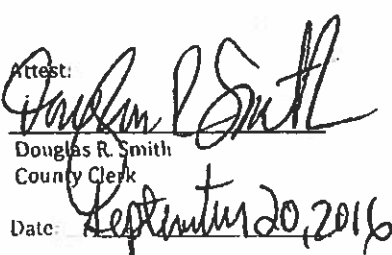 Attest:
Douglas R Smith
Douglas R. Smith
County Clerk
Date: September 20, 2016